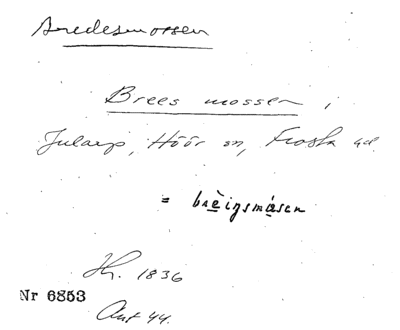 Bredesmossen
Brees mossen i
Jularp, Höör sn, Frosta hd.
= brèigsmåsen
Hr. 1836
Nr 6853
Ant 44.